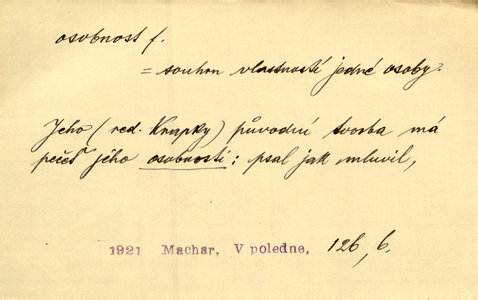 osobnost f.
= souhrn vlastností jedné osoby.
Jeho (red. Knapky) původní tvorba má
pečeť jeho osobnosti: psal jak mluvil,
1921 Machar, V poledne, 126, 6.